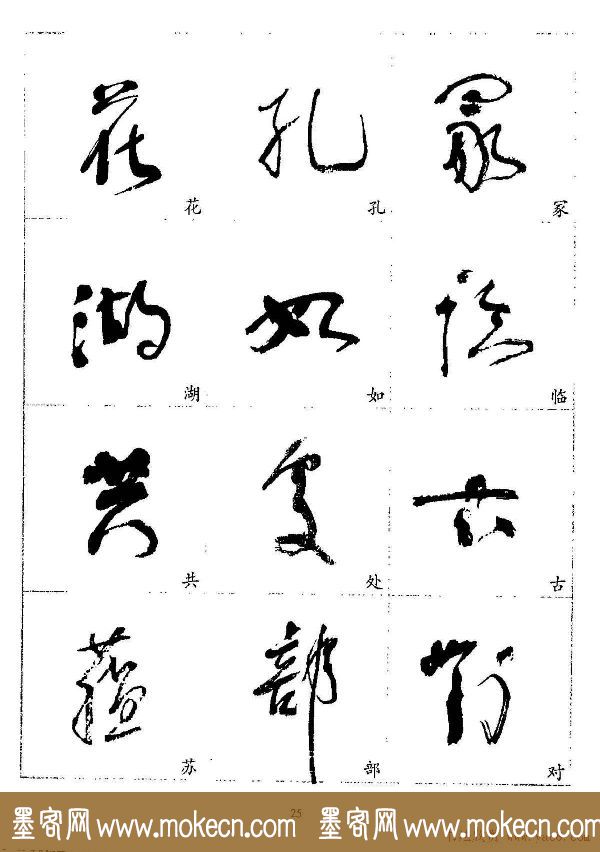 花 孔 冢
湖 如 临
共 处 古
苏 部 对
25
墨客网 www.mokecn.com 墨客网 www.mokecn.com